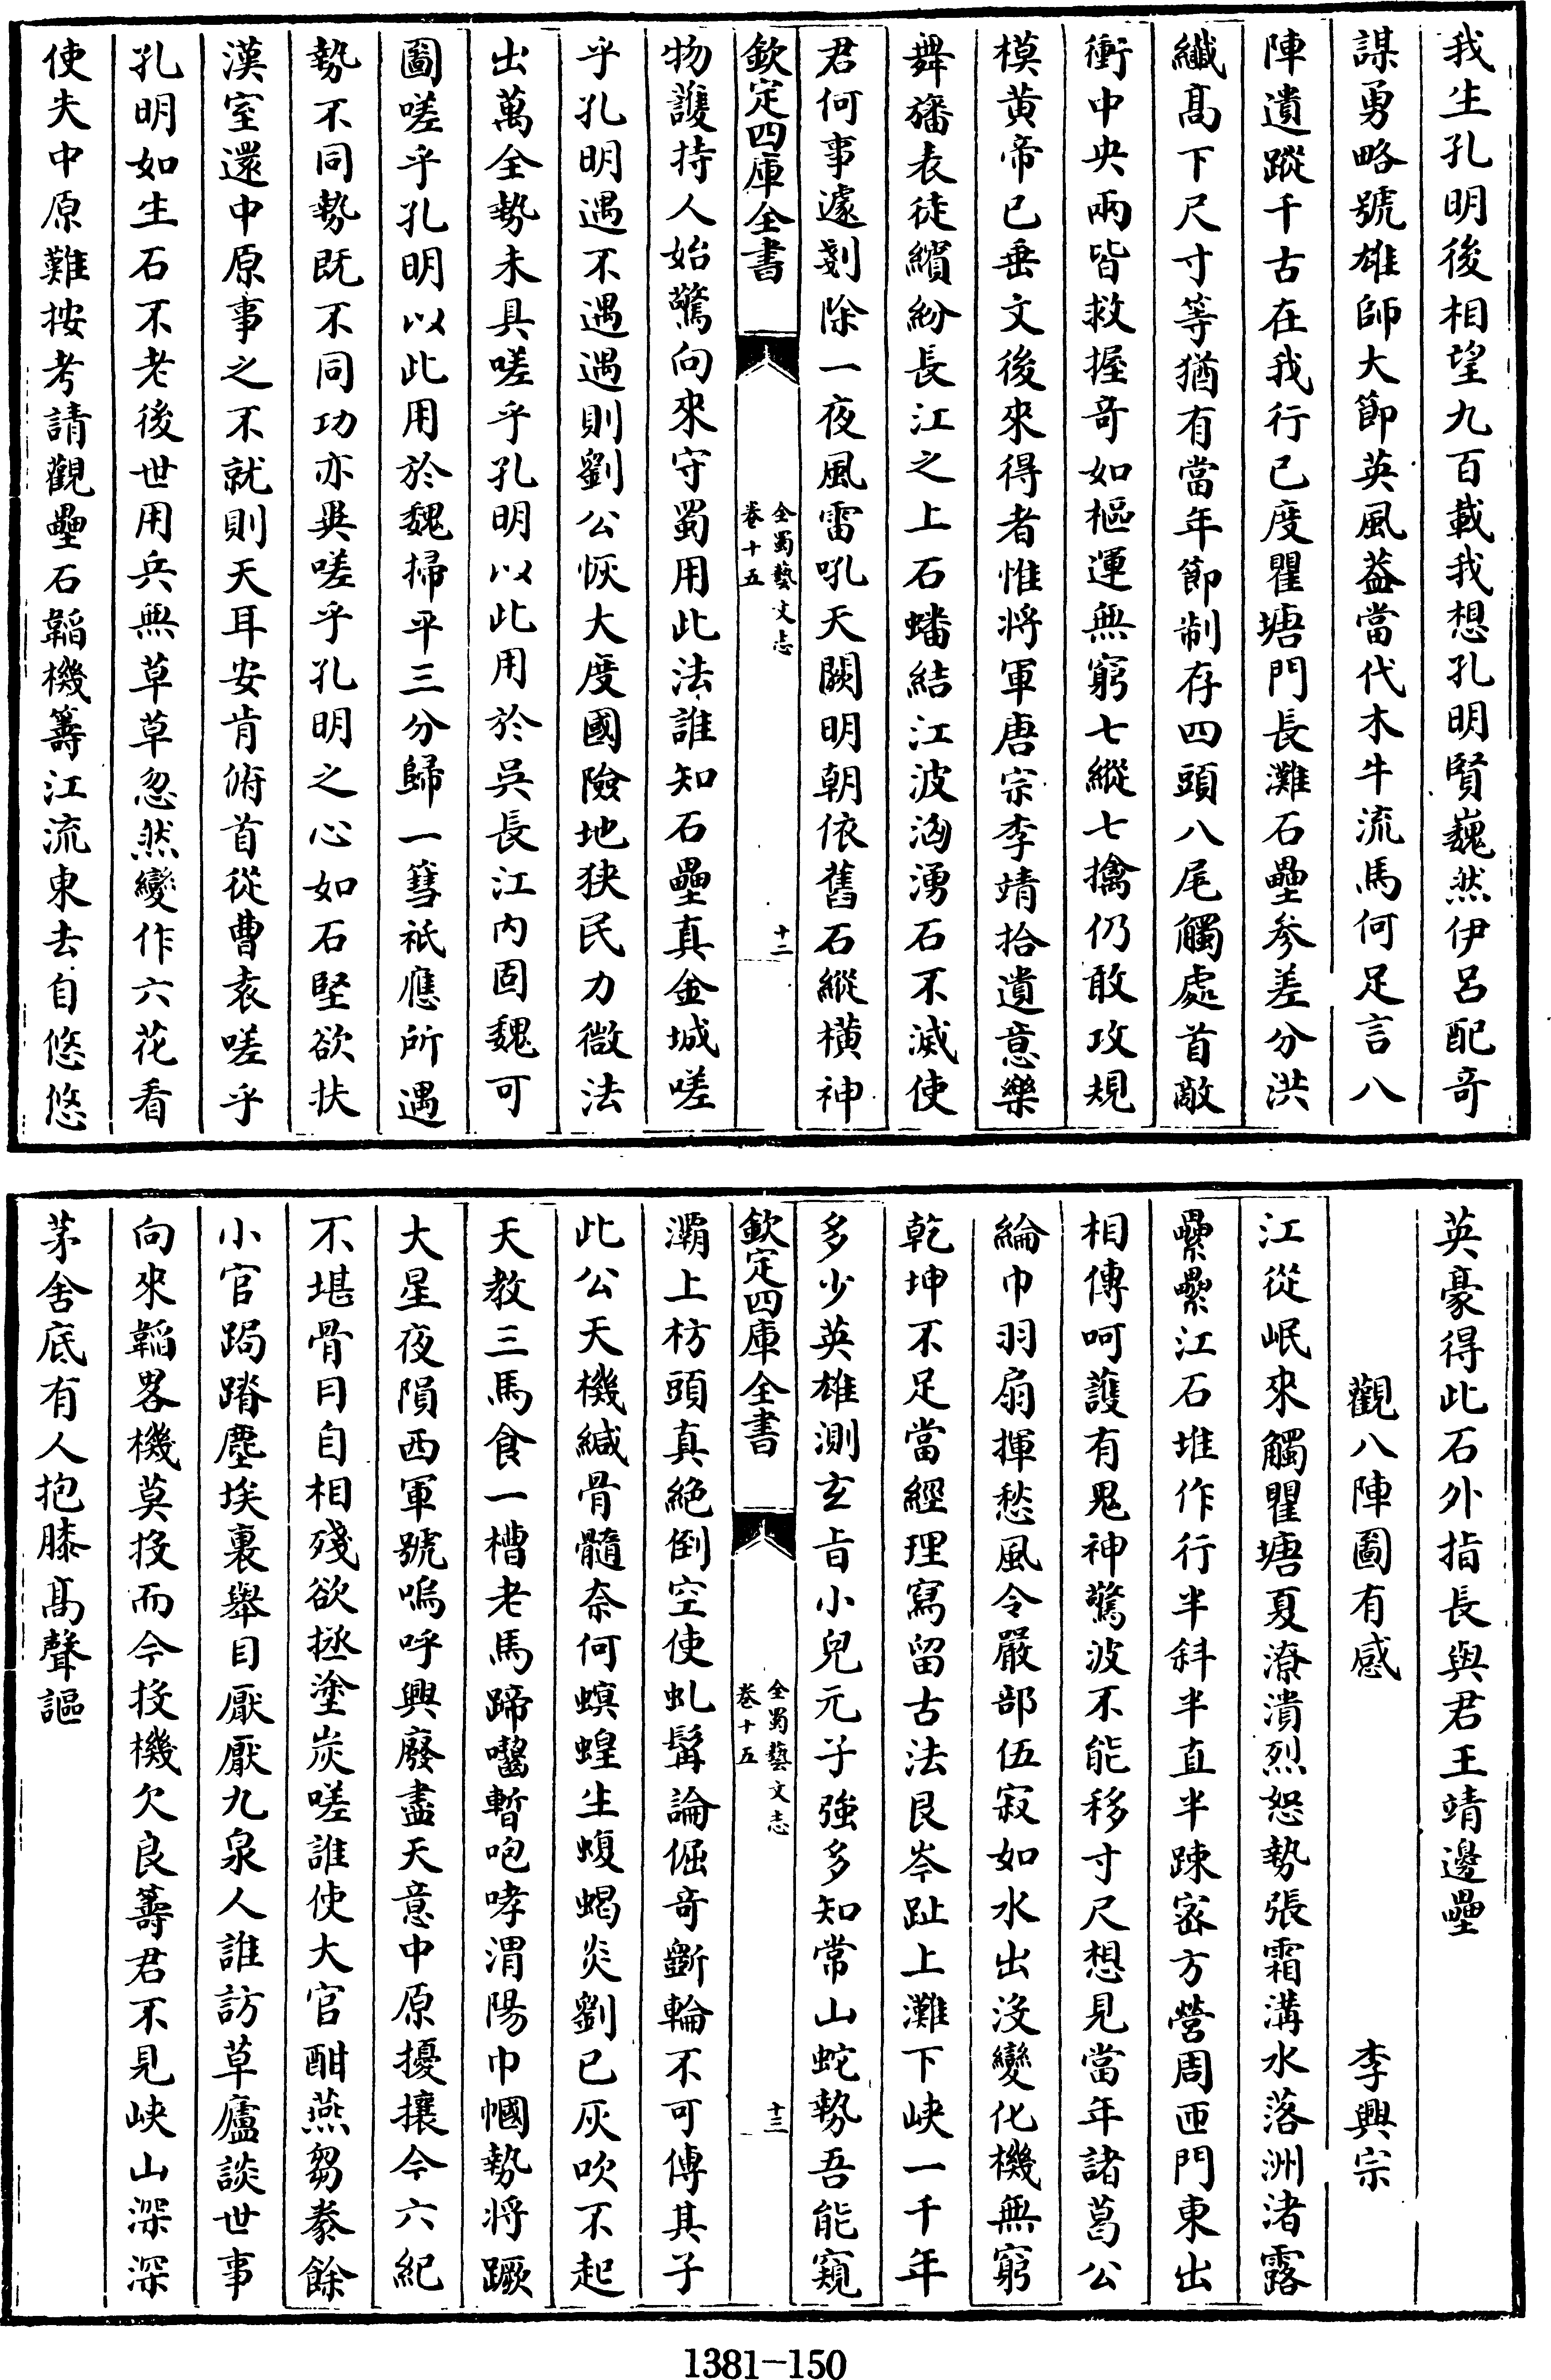 我生孔明後相望九百載我想孔明賢巍然伊呂配竒
謀勇略號雄師大節英風葢當代木牛流馬何足言八
陣遺蹤千古在我行已度瞿塘門長灘石壘參差分洪
纎髙下尺寸等猶有當年節制存四頭八尾觸處首敵
衝中央兩皆救握竒如樞運無窮七縱七擒仍敢攻規
模黄帝已垂文後來得者惟将軍唐宗李靖拾遺意樂
舞旛表徒繽紛長江之上石蟠結江波洶湧石不滅使
君何事遽剗除一夜風雷吼天闕明朝依舊石縱横神
欽定四庫全書
全蜀藝文志
卷十五
十二
物護持人始驚向來守蜀用此法誰知石壘真金城嗟
乎孔明遇不遇遇則劉公恢大度國險地狹民力微法
出萬全勢未具嗟乎孔明以此用於吳長江内固魏可
圖嗟乎孔明以此用於魏掃平三分歸一彗祗應所遇
勢不同勢既不同功亦異嗟乎孔明之心如石堅欲扶
漢室還中原事之不就則天耳安肯俯首從曹袁嗟乎
孔明如生石不老後世用兵無草草忽然變作六花看
使失中原難按考請觀壘石韜機籌江流東去自悠悠
英豪得此石外指長與君王靖邊壘
觀八陣圖有感
李興宗
江從岷來觸瞿塘夏潦潰烈怒勢張霜溝水落洲渚露
纍纍江石堆作行半斜半直半踈宻方營周匝門東出
相傳呵護有鬼神驚波不能移寸尺想見當年諸葛公
綸巾羽扇揮愁風令嚴部伍寂如水出没變化機無窮
乾坤不足當經理寫留古法艮岑趾上灘下峽一千年
多少英雄測玄旨小兒元子強多知常山蛇勢吾能窺
欽定四庫全書
全蜀藝文志
卷十五
十三
灞上枋頭真絶倒空使虬髯論倔竒斵輪不可傳其子
此公天機緘骨髓奈何螟蝗生蝮蝎炎劉已灰吹不起
天教三馬食一槽老馬蹄嚙暫咆哮渭陽巾幗勢将蹶
大星夜隕西軍號嗚呼興廢盡天意中原擾攘今六紀
不堪骨月自相殘欲拯塗炭嗟誰使大官酣燕芻豢餘
小官跼蹐塵埃裏舉目厭厭九泉人誰訪草廬談世事
向來韜畧機莫投而今投機欠良籌君不見峽山深深
茅舍底有人抱膝髙聲謳
1381-150